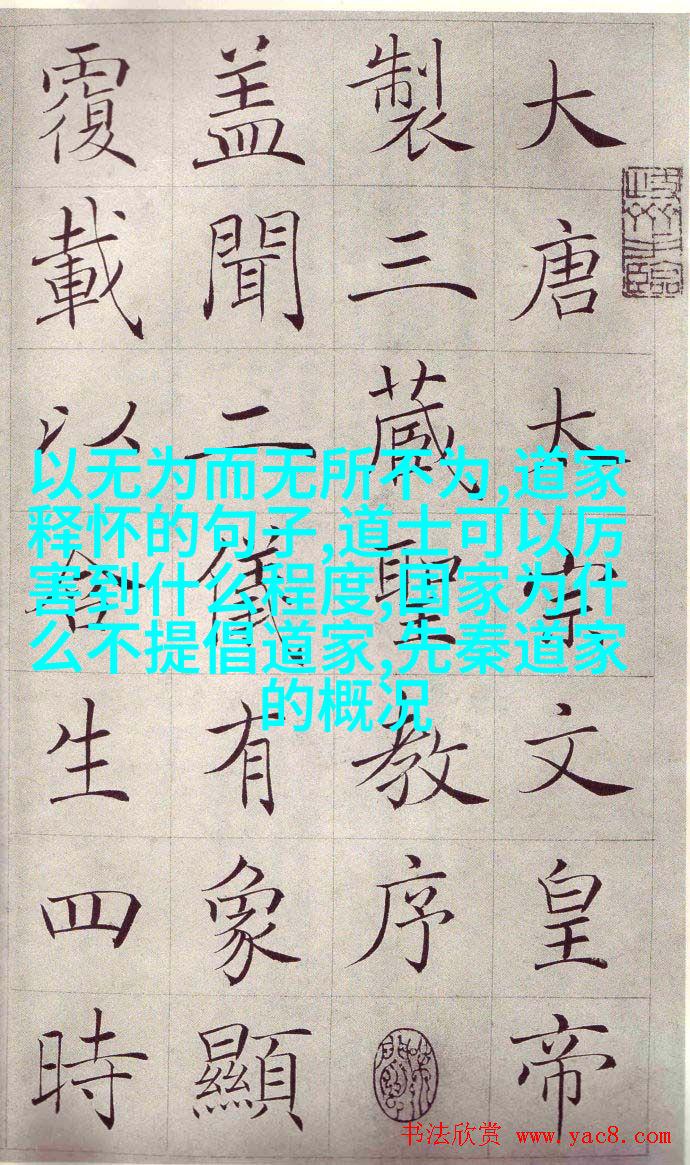 大唐太宗文皇帝
製三藏聖教序
盖聞二儀有象顯
覆載以含生四時
以无为而无所不为,道家
释怀的句子,道士可以厉
害到什么程度,国家为什
么不提倡道家,先秦道家
的概况
书法欣赏 www.yac8.com